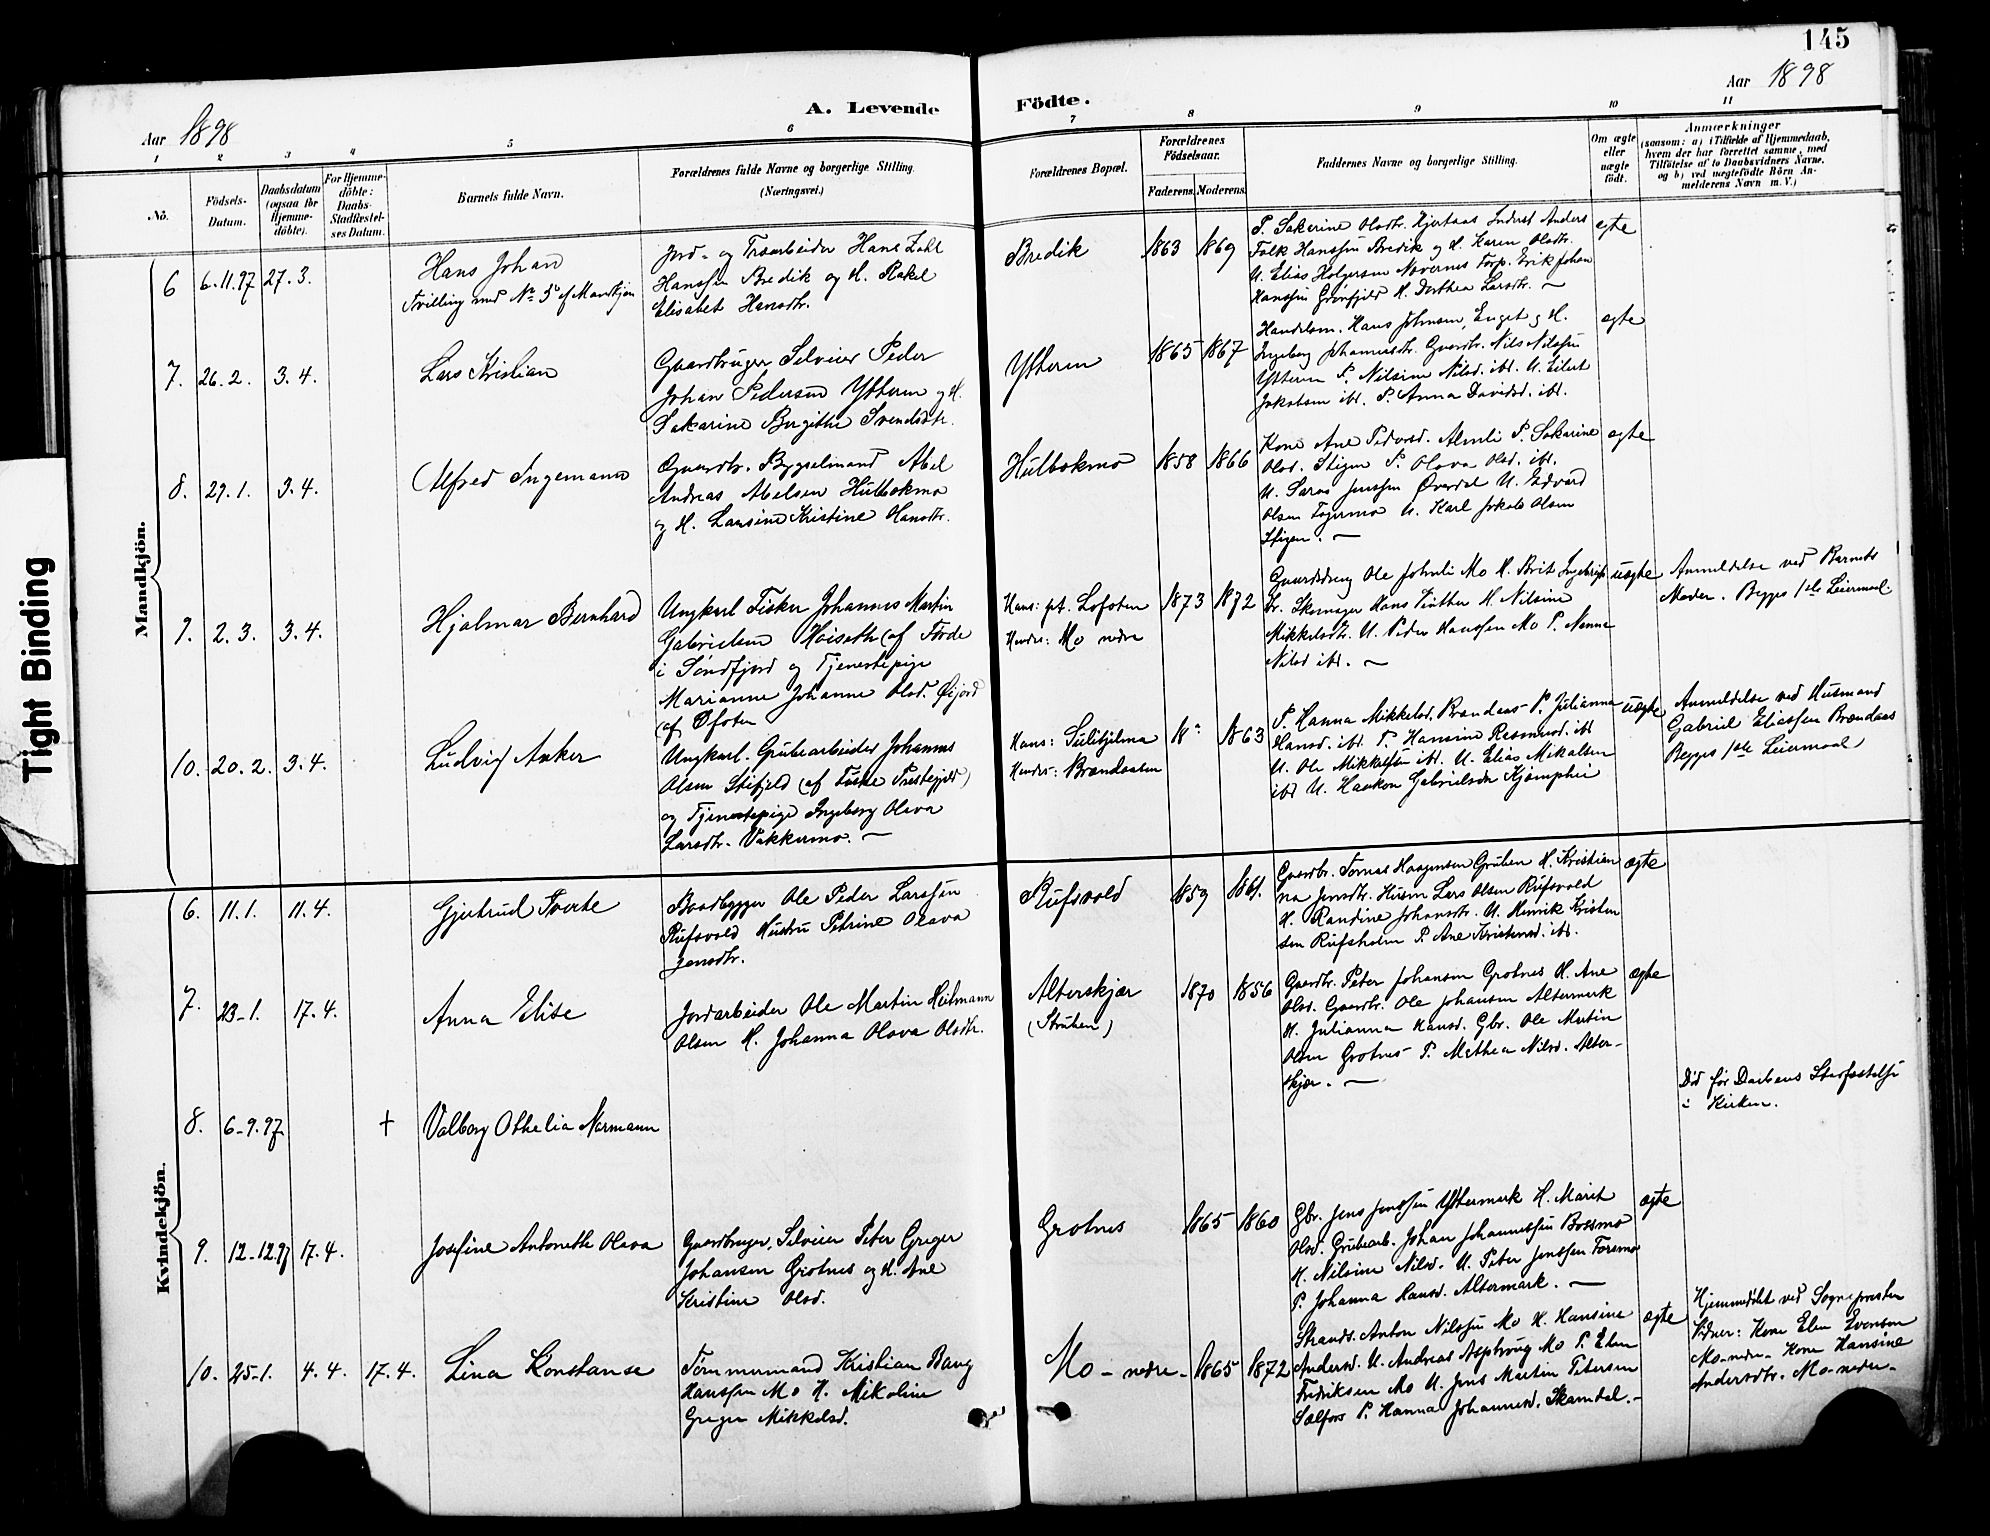 145
Aar 1898
A. Levende
Födte.
Aar 1898
1 2 3 4 5 6 7 8 9 10 11
No.
Födsels-
Datum.
Daabsdatum
(ogsaa for
Hjemme-
döbte).
For Hjemme-
döbte:
Daabs-
Stadfæstel-
ses Datum.
Barnets fulde Navn.
Forældrenes fulde Navne og borgerlige Stilling.
(Næringsvei.)
Forældrenes Bopæl.
Forældrenes
Födselsaar.
Faderens. Moderens.
Faddernes Navne og borgerlige Stilling.
Om ægte
eller
uægte
födt.
Anmærkninger
(saasom: a) i Tilfælde af Hjemmedaab,
hvem der har forrettet samme, med
Tilföielse af to Daabsvidners Navne,
og b) ved uægtefödte Börn An-
melderens Navn m. V.)
Tight Binding
Mandkjön.
6 6.11.97 27.3.
Hans Johan
Tvilling med No 5 af Mandkjøn
Jord- og Træarbeider Hans Zahl
Hanssen Bredik og H. Rakel
Elisabet Hansdtr.
Bredik
1863 1869
P. Sakarine Olsdtr. Hjertaas Inderst Anders
Falk Hanssen Bredik og H. Karen Olsdtr.
U. Elias Holgersen Nævernes Forp. Erik Johan
Hanssen Grønfjeld H. Dorthea Larsdtr. —
ægte
7. 26.2. 3.4.
Lars Kristian
Gaardbruger Selveier Peder
Johan Pedersen Ytteren og H.
Sakarine Bergithe Svendsdtr.
Ytteren
1865 1867
Handelsm. Hans Johnsen, Enget og H.
Ingeborg Johannesdtr. Gaardbr. Nils Nilssen
Ytteren P. Nilsine Nilsd. ibd. U. Eilert
Jakobsen ibd. P. Anna Davidsd. ibd.
ægte
8. 29.1. 3.4.
Alfred Ingemann
Gaardbr. Bygselmand Abel
Andreas Abelsen Hulbækmo
og H. Laursine Kristine Hansdtr.
Hulbækmo
1858 1866
Kone Ane Pedersd. Almli P. Sakarine
Olsd. Stigen P. Olava Olsd. ibd.
U. Søren Jenssen Øverdal U. Edvard
Olsen Fagermo U. Karl Jakob Olsen
Stigen. —
ægte
9. 2.3. 3.4.
Hjalmar Bernhard
Ungkarl Fisker Johannes Martin
Gabrielsen Høiseth (af Førde
i Søndfjord og Tjenestepige
Marianne Johanne Olsd. Øijord
(af Ofoten
Hans: pt. Lofoten
Hendes: Mo nedre
1873 1872
Gaardsdreng Ole Johnli Mo H. Brit Ingebrigts-
dr. Skomager Hans Vinther H. Nilsine
Mikkelsdtr. U. Peder Hanssen Mo P. Nanna
Nilsd ibd. —
uægte
Anmeldelse ved Barnets
Moder. Begges 1ste Leiermaal
10. 20.2. 3.4.
Ludvig Anker
Ungkarl. Grubearbeider Johannes
Olsen Stifjeld (af Fuske Præstegjeld)
og Tjenestepige Ingeborg Olava
Larsdtr. Vakkermo. —
Hans: Sulitjelma
Hendes: Brændaasen
18 1863
P. Hanna Mikkelsd. Brændaas P. Julianna
Hansd. ibd. P. Hansine Rasmusd. ibd
U. Ole Mikkelsen ibd. U. Elias Mikalsen
ibd U. Haakon Gabrielsen Kjæmphei
uægte
Anmeldelse ved Husmand
Gabriel Eliassen Brændaas
Begges 1ste Leiermaal
Kvindekjön.
6. 11.1. 11.4.
Gjertrud Tverte
Baadbygger Ole Peder Larssen
Rufsvold Hustru Petrine Olava
Jensdtr.
Rufsvold
1859 1861.
Gaardbr. Tomas Haagensen Gruben H. Kristian
na Jensdtr. Husm Lars Olsen Rufsvold
H. Randine Johansdtr. U. Henrik Kristen
sen Rufsholm P. Ane Kristensd. ibd.
ægte
7. 23-1. 17.4.
Anna Elise
Jordarbeider Ole Martin Heitmann
Olsen H. Johanna Olava Olsdtr.
Alterskjær
(Struben)
1870 1856
Gaardbr. Peter Johansen Grotnes H. Ane
Olsd. Gaardbr. Ole Johansen Altermark
H. Julianna Hansd. Gbr. Ole Martin
Olsen Grotnes P. Mathea Nilsd. Alter-
skjær. —
ægte
8. 6-9.97 +
Valborg Othelia Normann
Død før Daabens Stadfæstelse
i Kirken.
9. 12-12.97 17.4.
Josefine Antonette Olava
Gaardbruger, Selveier Peter Greger
Johansen Grotnes og H. Ane
Kristine Olsd.
Grotnes
1865 1860
Gbr. Jens Jenssen Yttermark H. Marit
Olsd. Grubearb. Johan Johannessen Bossmo
H. Nilsine Nilsd. U. Peter Jenssen Forsmo
P. Johanna Hansd. Altermark. —
ægte
10. 25-1. 4.4. 17.4.
Lina Konstanse
Tømmermand Kristian Bang
Hanssen Mo H. Nikoline
Gregera Mikkelsd.
Mo-nedre-
1865 1872
Strands. Anton Nilssen Mo H. Hansine
Andersd. U. Andreas Asphaug Mo P. Elen
Fredriksen Mo U. Jens Martin Petersen
Selfors P. Hanna Johannesd. Skamdal.-
ægte
Hjemmedøbt ved Sognepresten
Vidner: Kone Elen Svensen
Mo-nedre- Kone Hansine
Andersdtr. Mo-nedre-